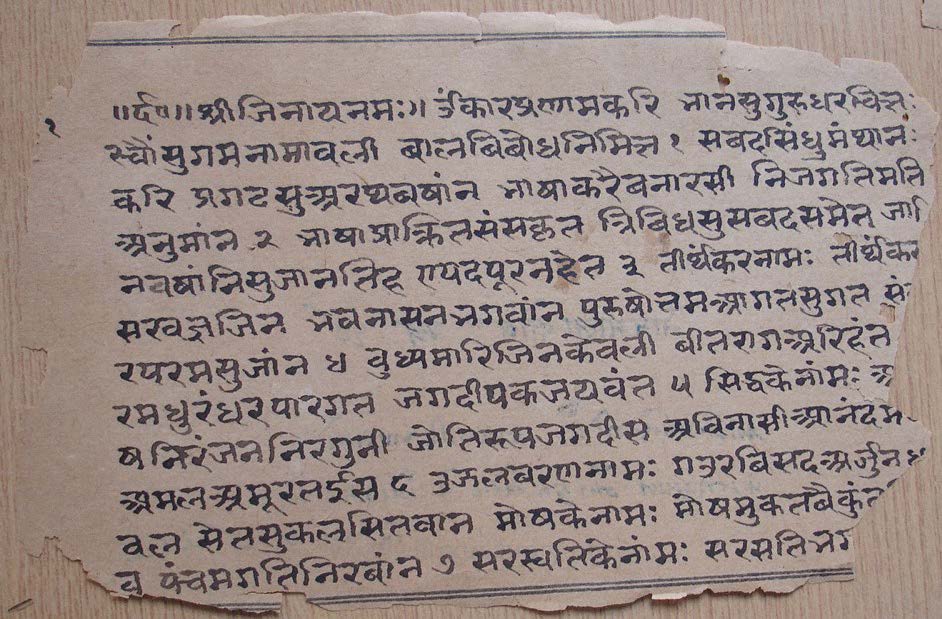 १
॥र्द॰॥ श्रीजिनायनमः॥ उंकारप्रणामकरि भानसुगुरुधरचित्त
रच्यौंसुगमनामावली बालविबोधनिमित्त १ सबदसिंधुमंथान
करि प्रगटसुअरथबषांन भाषाकरैबनारसी निजगतिमति
अनुमांन २ भाषाप्राक्रितसंसकृत त्रिविधसुसबदसमेत जानि
नवषांनिसुजानतिह एपदपूरनहेत ३ तीर्थंकरनामः तीर्थंकर
सरवज्ञजिन भवनासनभगवांन पुरुषोतमआगतसुगत
रपरमसुजांन ४ बुध्यमारिजिनकेवली बीतरागअरिहंत
रमधुरंधरपारगत जगदीपकजयवंत ५ सिद्धकेनांमः
षनिरंजननिरगुनी जोतिरूपजगदीस अविनासीआनंदम
अमलअमूरतईस ६ उजलबरणनामः गउरबिसदअर्जुन
वल सेतसुकलसितवान मोषकेनामः मोषमुकतबैकुंठ
व पंचमगतिनिरबांन ७ सरस्वतिकेनांमः सरसतिभग